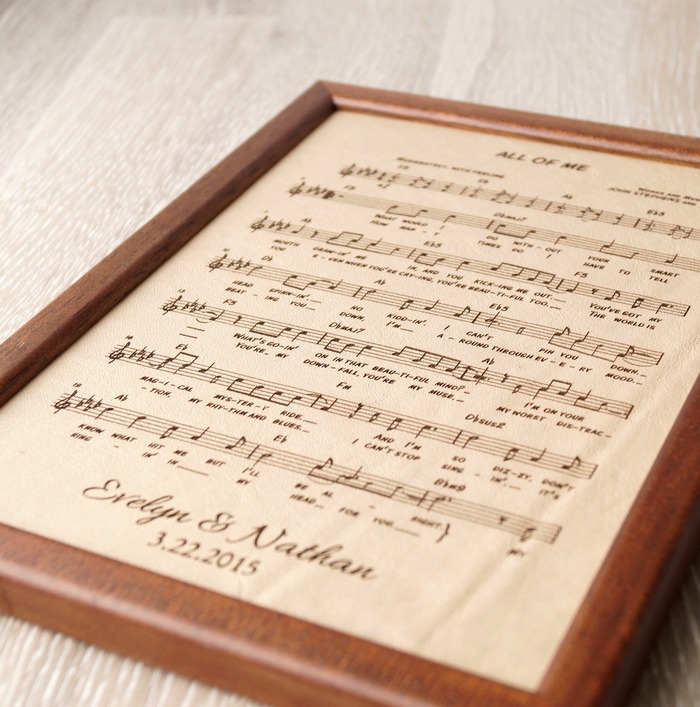 ALL OF ME
MODERATELY, WITH FEELING
JOHN STEPHENS AND
F5 Ab Eb5
F5 Dbmaj7
WHAT WOULD I DO WITH - OUT YOUR SMART
HOW MAN - Y TIMES DO I HAVE TO TELL
Ab Eb5 F5
MOUTH DRAW-IN' ME IN, AND YOU KICK-ING ME OUT. YOU'VE GOT MY
E - VEN WHEN YOU'RE CRY-ING, YOU'RE BEAU-TI-FUL TOO. THE WORLD IS
Db Ab Eb5
HEAD SPIN-IN'. NO KIDD-IN'. I CAN'T PIN YOU DOWN.
BEAT - ING YOU DOWN, I'M A - ROUND THROUGH EV - E - RY MOOD.
F5 Dbmaj7 Ab
WHAT'S GO-IN' ON IN THAT BEAU-TI-FUL MIND? I'M ON YOUR
YOU'RE MY DOWN - FALL, YOU'RE MY MUSE, MY WORST DIS-TRAC-
Eb Fm Dbsus2
MAG-I-CAL MYS-TER-Y RIDE. AND I'M SO DIZ-ZY, DON'T
- TION, MY RHY-THM AND BLUES. I CAN'T STOP SING - IN'. IT'S
Ab Eb Bbm9
KNOW WHAT HIT ME BUT I'LL BE AL - RIGHT.
RING - IN' IN MY HEAD FOR YOU. MY
Evelyn & Nathan
3.22.2015